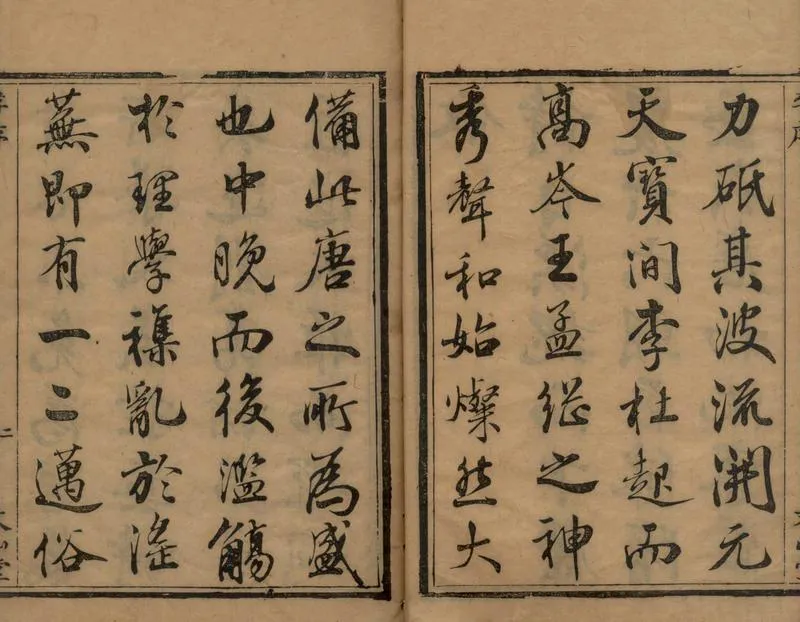 力砥其波流開元
天寶間李杜起而
高岑王孟繼之神
秀聲和始燦然大
備此唐之所為盛
也中晚而後濫觴
於理學襍亂於淫
蕪即有一二邁俗